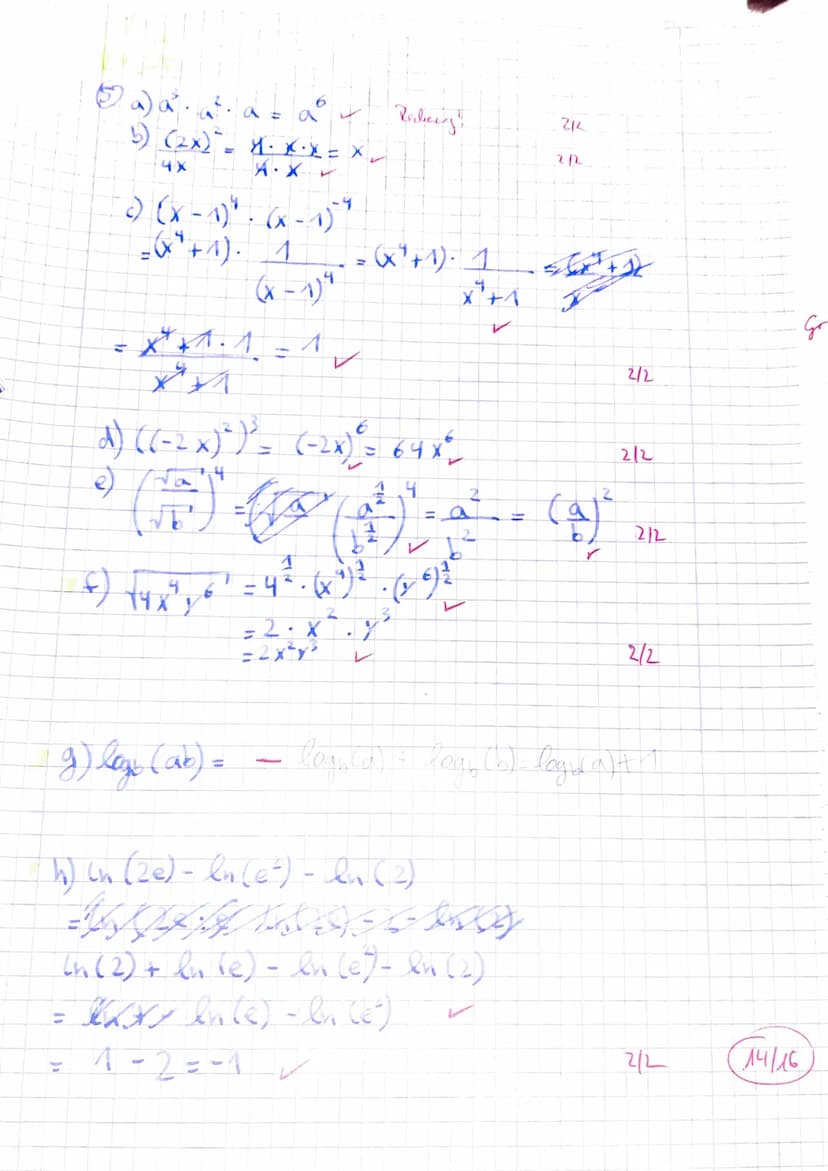 5) a) a³ · a² · a = a⁶ ✓ Rechnung! 2/2
b) (2x)²/4x = 4·x·x/4·x = x ✓ 2/2
c) (x-1)⁴ · (x-1)⁻⁴
=(x⁴+1) · 1/(x-1)⁴ = (x⁴+1) · 1/x⁴+1 = (x⁴+1)
Gr
= x⁴+1·1/x⁴+1 = 1 ✓ 2/2
d) ((-2x)²)³ = (-2x)⁶ = 64x⁶ ✓ 2/2
e) (√a/√b)⁴ = (√a (a^½/b^½)⁴ = a²/b² = (a/b)² 2/2
f) √4x⁴y⁶ = 4^½ · (x⁴)^½ · (y⁶)^½ ✓
= 2 · x² · y³
= 2x²y³ ✓ 2/2
g) log_b(ab) = – log_b(a) + log_b(b) = log_b(a) + 1
h) ln(2e) - ln(e²) - ln(2)
ln(2) + ln(e) - ln(e²) - ln(2)
= ln(e) - ln(e²) ✓
= 1 - 2 = -1 ✓ 2/2 14/16